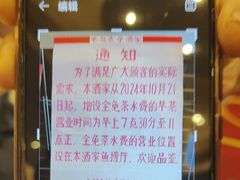 编辑
通知
为了满足广大顾客的实际
需求，本酒家从2024年10月21
日起，增设全免茶水费的早茶
营业时间为早上7点30分至11
点正。全免茶水费的营业位置
设在本酒家鱼捞厅，欢迎品鉴